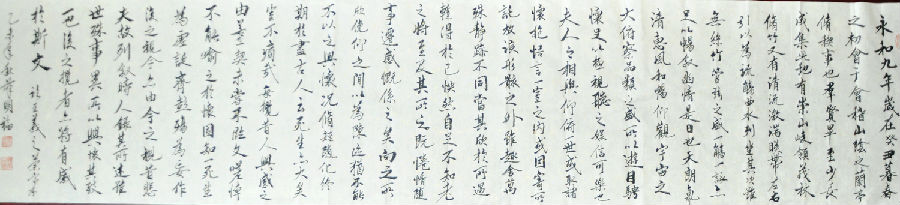 永和九年歲在癸丑暮春
之初會于會稽山陰之蘭亭
脩禊事也羣賢畢至少長
咸集此地有崇山峻領茂林
脩竹又有清流激湍暎帶左右
引以為流觴曲水列坐其次雖
無絲竹管絃之盛一觴一詠亦
足以暢敘幽情是日也天朗氣
清惠風和暢仰觀宇宙之
大俯察品類之盛所以遊目騁
懷足以極視聽之娛信可樂也
夫人之相與仰俯一世或取諸
懷抱悟言一室之內或因寄所
託放浪形骸之外雖趣舍萬
殊靜躁不同當其欣於所遇
暫得於己怏然自足不知老
之將至及其所之既惓情隨
事遷感慨係之矣向之所
欣俛仰之間以為陳迹猶不能
不以之興懷況脩短隨化終
期於盡古人云死生亦大矣
豈不痛哉每攬昔人興感之
由若合一契未嘗不臨文嗟悼
不能喻之於懷固知一死生
為虛誕齊彭殤為妄作
後之視今亦由今之視昔悲
夫故列敘時人錄其所述雖
世殊事異所以興懷其致
一也後之攬者亦將有感
於斯文 王羲之蘭亭序
乙未年秋